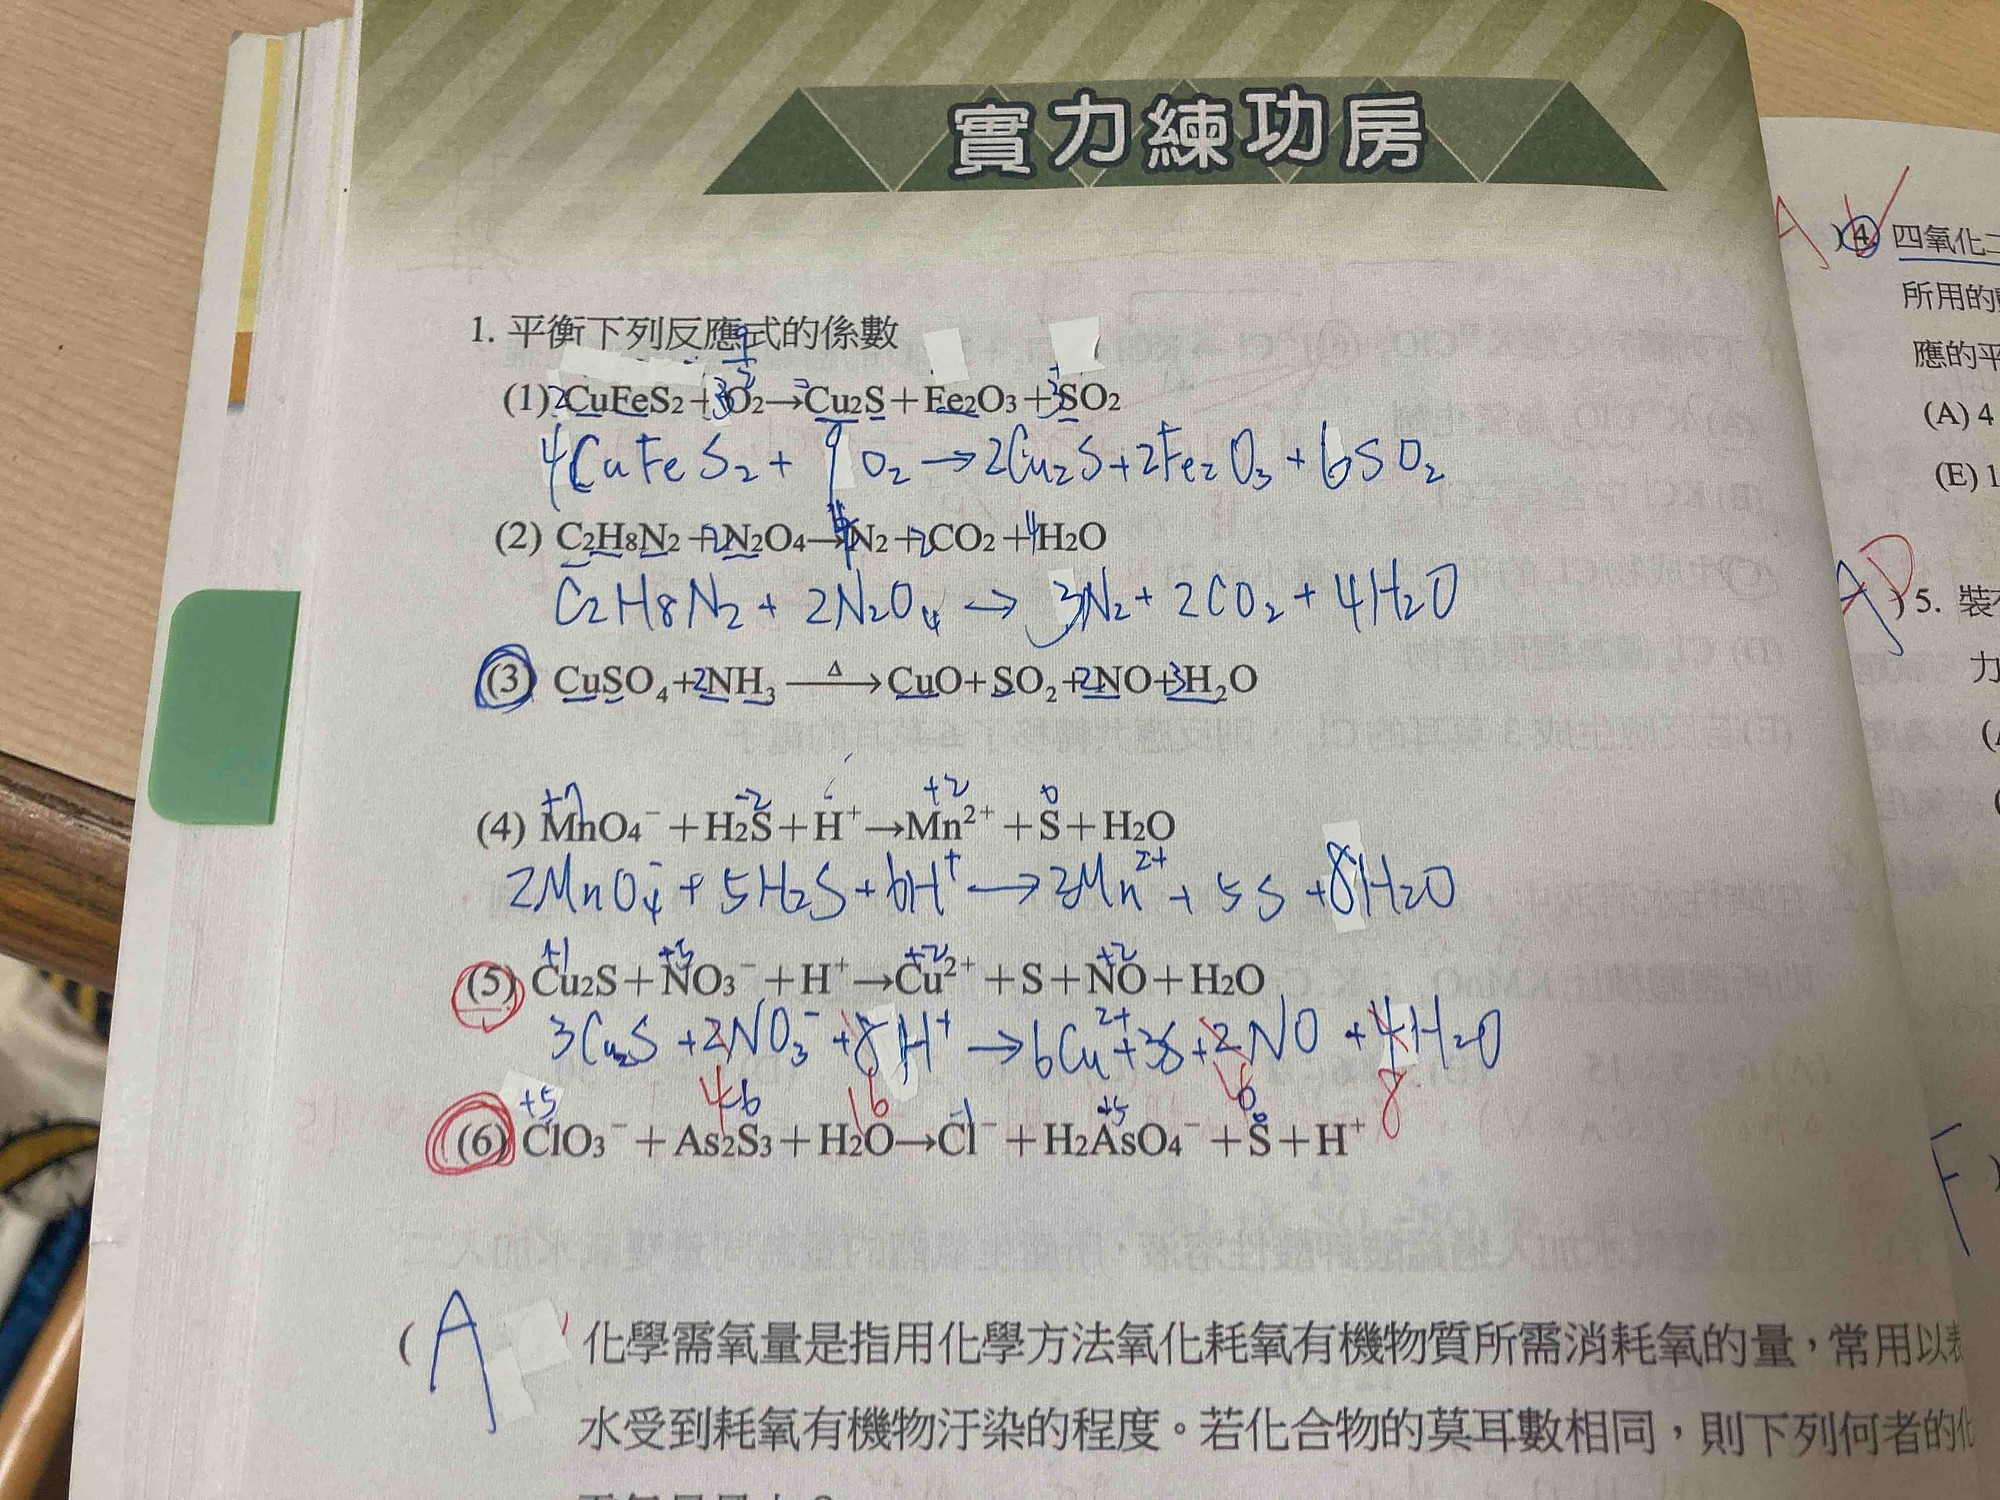 實力練功房
1. 平衡下列反應式的係數
(1) 2CuFeS2+3O2→Cu2S+Fe2O3+3SO2
4CuFeS2+9O2→2Cu2S+2Fe2O3+6SO2
(2) C2H8N2+2N2O4→N2+2CO2+4H2O
C2H8N2+2N2O4→3N2+2CO2+4H2O
(3) CuSO4+2NH3 Δ→ CuO+SO2+2NO+3H2O
+7 -2 +2 0
(4) MnO4⁻+H2S+H⁺→Mn²⁺+S+H2O
2MnO4⁻+5H2S+6H⁺→2Mn²⁺+5S+8H2O
+1 +5 +2 +2
(5) Cu2S+NO3⁻+H⁺→Cu²⁺+S+NO+H2O
3Cu2S+2NO3⁻+8H⁺→6Cu²⁺+3S+2NO+4H2O
4 16 8
+5 -6 -1 +5 0
(6) ClO3⁻+As2S3+H2O→Cl⁻+H2AsO4⁻+S+H⁺
( A 化學需氧量是指用化學方法氧化耗氧有機物質所需消耗氧的量，常用以表
水受到耗氧有機物汙染的程度。若化合物的莫耳數相同，則下列何者的化
A )4. 四氧化二
所用的
應的平
(A) 4
(E) 1
A D ) 5. 裝
力
F